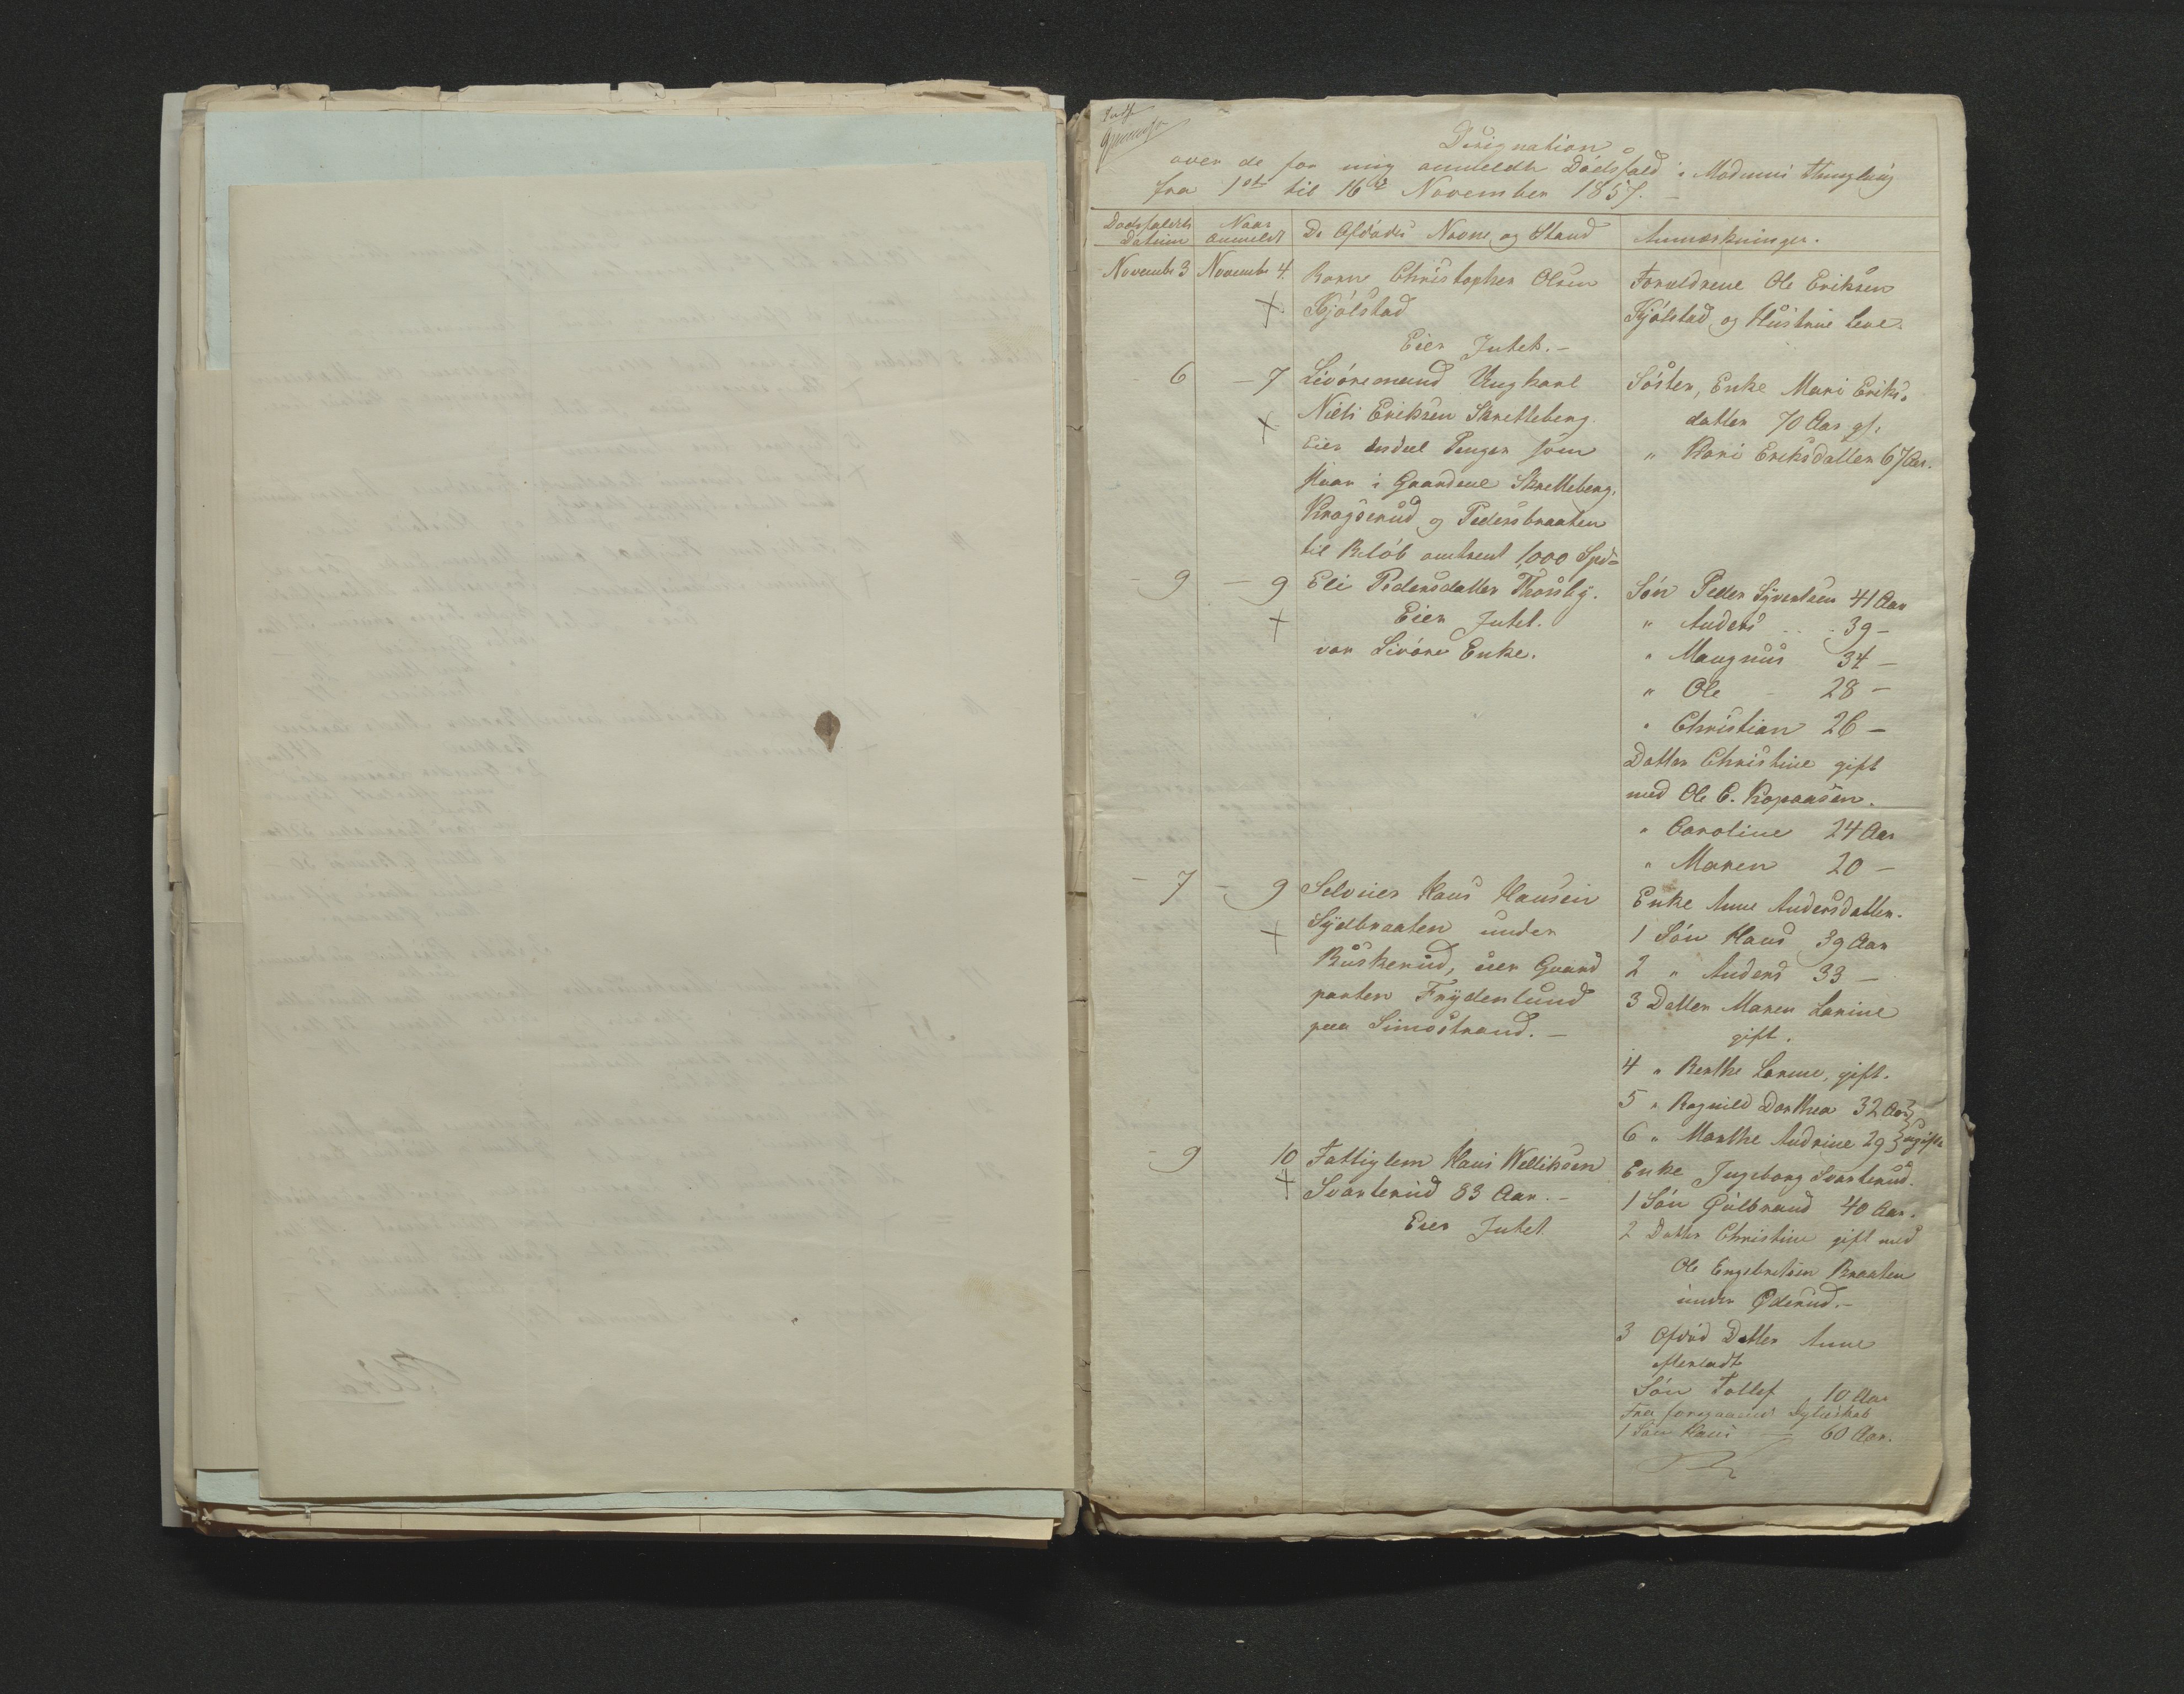 Designation
over de for mig anmeldte Dødsfald i Modums Thinglaug
fra 1ste til 16de November 1857.
Dødsfaldets Datum
Naar anmeldt
De Afdødes Navne og Stand
Anmærkninger.
Novembr 3 Novembr 4. Barn Christopher Olsen
Kjølstad
Eier Intet.-
Forældrene Ole Eriksen
Kjølstad og Hustrue leve.
6 - 7 Livøremand Ungkarl
Niels Eriksen Skretteberg
Eier endeel Penger som
staar i Gaardene Skretteberg,
Krogserud og Pedersbraaten
til Beløb omtrent 1000 Spd
Søster, Enke Mari Eriks-
datter 70 Aar gl.
" Kari Eriksdatter 67 Aar.
- 9 - 9 Eli Pedersdatter Thorsby.
Eier Intet.
var Livøre Enke.
Søn Peder Syvertsen 41 Aar
" Anders 39 -
" Maugnus 34 -
" Ole - 28 -
" Christian 26 -
Datter Christine gift
med Ole C. Kopaasen.
" Caroline 24 Aar
" Maren 20 -
- 7 - 9 Selveier Hans Hansen
Sydbraaten under
Buskerud, eier Gaard
parten Frydenlund
paa Simostrand. -
Enke Anne Andersdatter.
1 Søn Hans 39 Aar
2 " Anders 33 -
3 Datter Maren Larine
gift.
4 " Berthe Lorine, gift.
5 " Ragnild Dorthea 32 Aar
6 " Marthe Andrine 29 ugifte
- 9 10 Fattiglem Hans Welliksen
Svarterud 83 Aar. -
Eier Intet
Enke Ingeborg Svarterud.
1 Søn Gulbrand 40 Aar.
2 Datter Christine gift med
Ole Engebretsen Braaten
under Øderud. -
3 Afdød Datter Anne
efterladt
Søn Tollef 10 Aar
Fra foregaaende Egteskab
1 Søn Hans - 60 Aar.